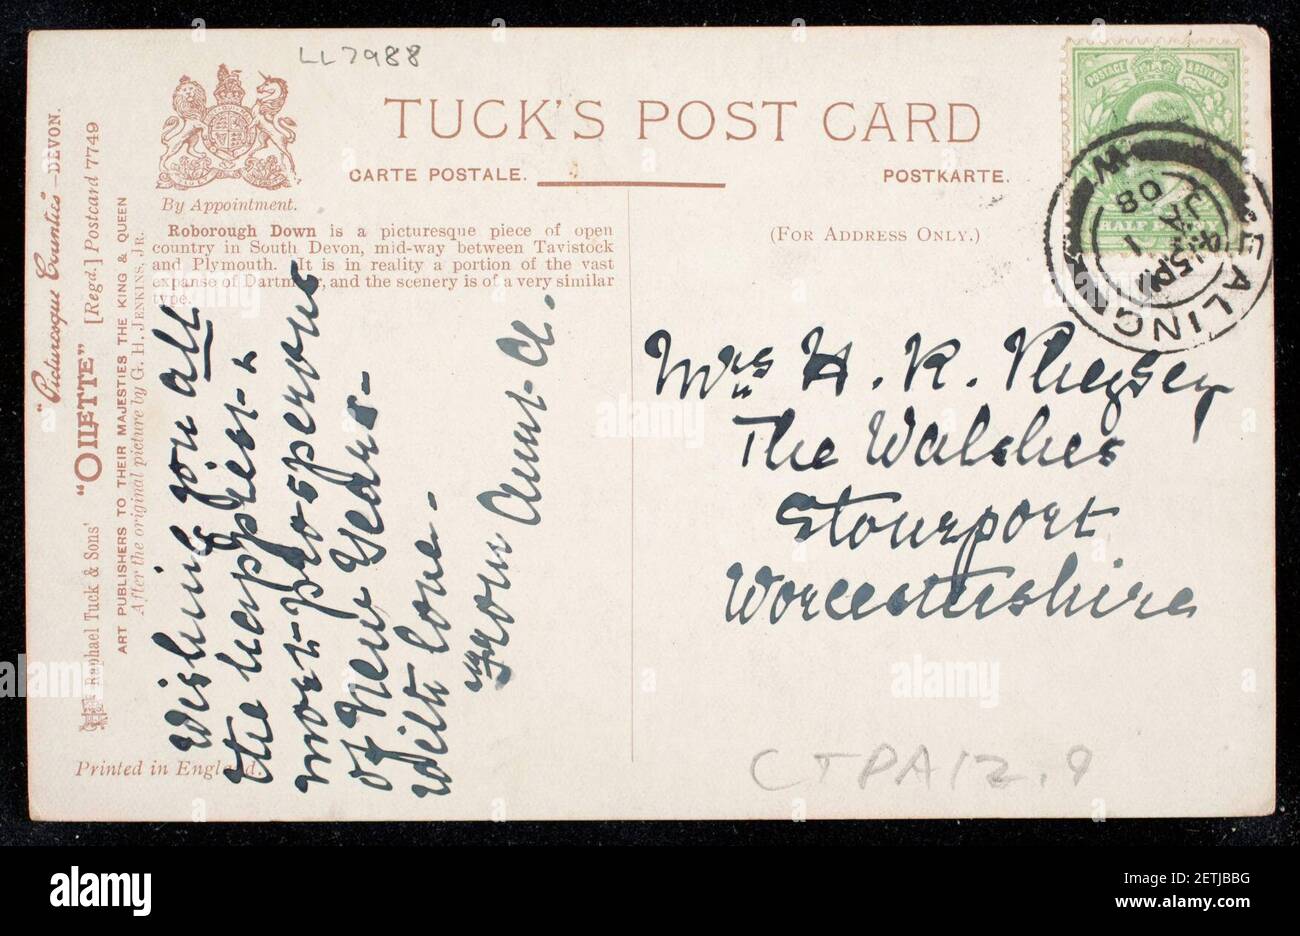 LL7988
TUCK'S POST CARD
CARTE POSTALE.
POSTKARTE.
By Appointment.
(FOR ADDRESS ONLY.)
Roborough Down is a picturesque piece of open
country in South Devon, mid-way between Tavistock
and Plymouth. It is in reality a portion of the vast
expanse of Dartmoor, and the scenery is of a very similar
type.
"Picturesque Counties"—DEVON.
"OILETTE" [Regd.] Postcard 7749
Raphael Tuck & Sons'
ART PUBLISHERS TO THEIR MAJESTIES THE KING & QUEEN
After the original picture by G. H. JENKINS, JR.
Printed in England.
Wishing you all
the happiest &
most prosperous
of New Years-
With love-
From Aunt Cl.
POSTAGE & REVENUE
HALF PENNY
EALING
W
4.15PM
JA 1
08
Mrs H. R.
The Walshes
Stourport
Worcestershire
CTPA12.9
alamy
Image ID: 2ETJBBG
www.alamy.com